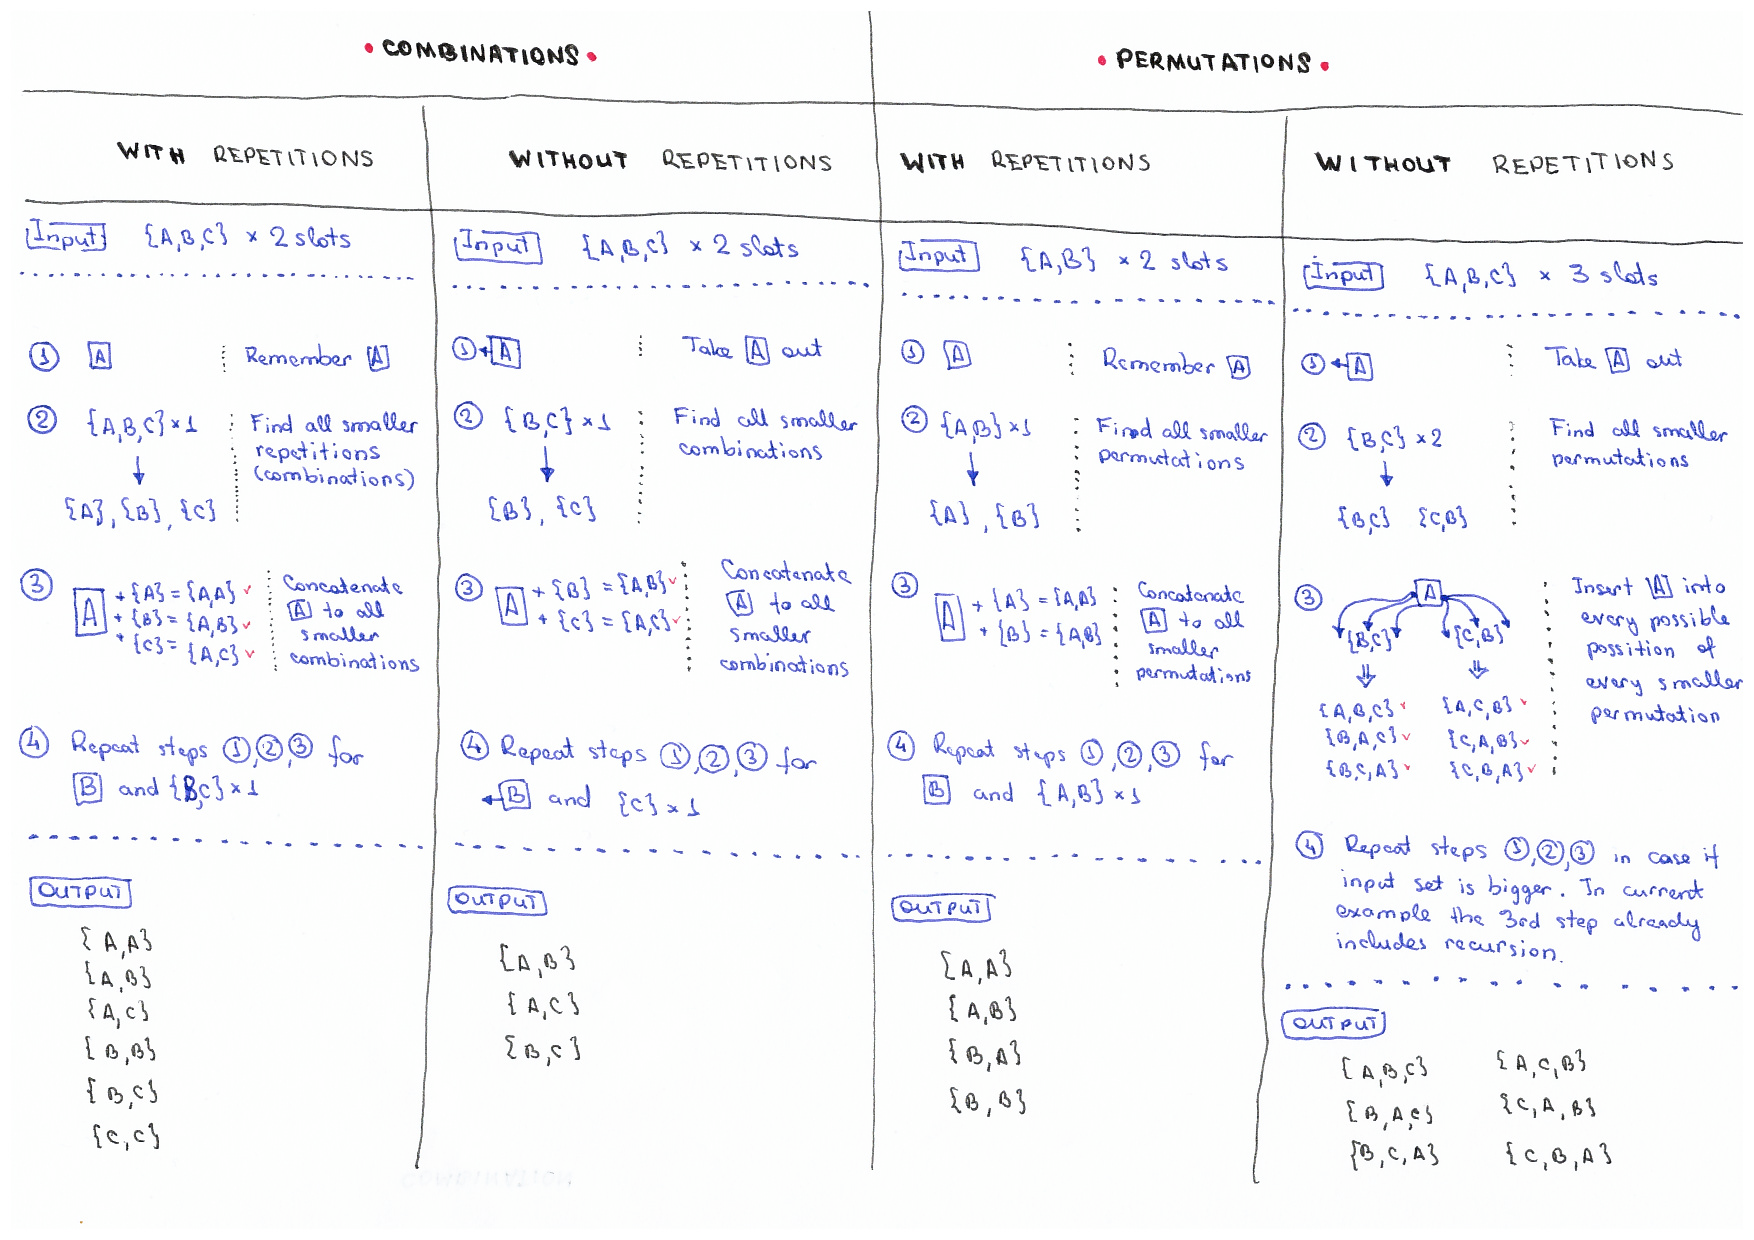 • COMBINATIONS •
WITH REPETITIONS
Input {A,B,C} × 2 slots
① A Remember A
② {A,B,C} × 1 Find all smaller
repetitions
(combinations)
{A}, {B}, {C}
③ A + {A} = {A,A} ✓ Concatenate
+ {B} = {A,B} ✓ A to all
+ {C} = {A,C} ✓ smaller
combinations
④ Repeat steps ①,②,③ for
B and {B,C} × 1
OUTPUT
{A,A}
{A,B}
{A,C}
{B,B}
{B,C}
{C,C}
WITHOUT REPETITIONS
Input {A,B,C} × 2 slots
① ←A Take A out
② {B,C} × 1 Find all smaller
combinations
{B}, {C}
③ A + {B} = {A,B} ✓ Concatenate
+ {C} = {A,C} ✓ A to all
smaller
combinations
④ Repeat steps ①,②,③ for
←B and {C} × 1
OUTPUT
{A,B}
{A,C}
{B,C}
• PERMUTATIONS •
WITH REPETITIONS
Input {A,B} × 2 slots
① A Remember A
② {A,B} × 1 Find all smaller
permutations
{A}, {B}
③ A + {A} = {A,A} Concatenate
+ {B} = {A,B} A to all
smaller
permutations
④ Repeat steps ①,②,③ for
B and {A,B} × 1
OUTPUT
{A,A}
{A,B}
{B,A}
{B,B}
WITHOUT REPETITIONS
Input {A,B,C} × 3 slots
① ←A Take A out
② {B,C} × 2 Find all smaller
permutations
{B,C} {C,B}
③ A Insert A into
{B,C} {C,B} every possible
possition of
every smaller
{A,B,C} ✓ {A,C,B} ✓ permutation
{B,A,C} ✓ {C,A,B} ✓
{B,C,A} ✓ {C,B,A} ✓
④ Repeat steps ①,②,③ in case if
input set is bigger. In current
example the 3rd step already
includes recursion.
OUTPUT
{A,B,C} {A,C,B}
{B,A,C} {C,A,B}
{B,C,A} {C,B,A}